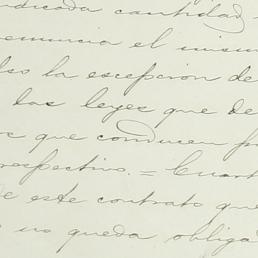 ndicada cantidad
renuncia el mism
lso la escepcion de
las leyes que de
que conducen p
respectivo. = Cuart
de este contrato que
no queda obliga